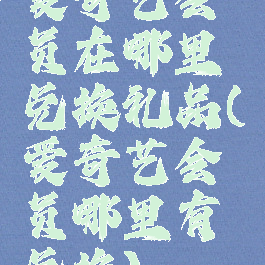 爱奇艺会
员在哪里
兑换礼品(
爱奇艺会
员哪里有
兑换)